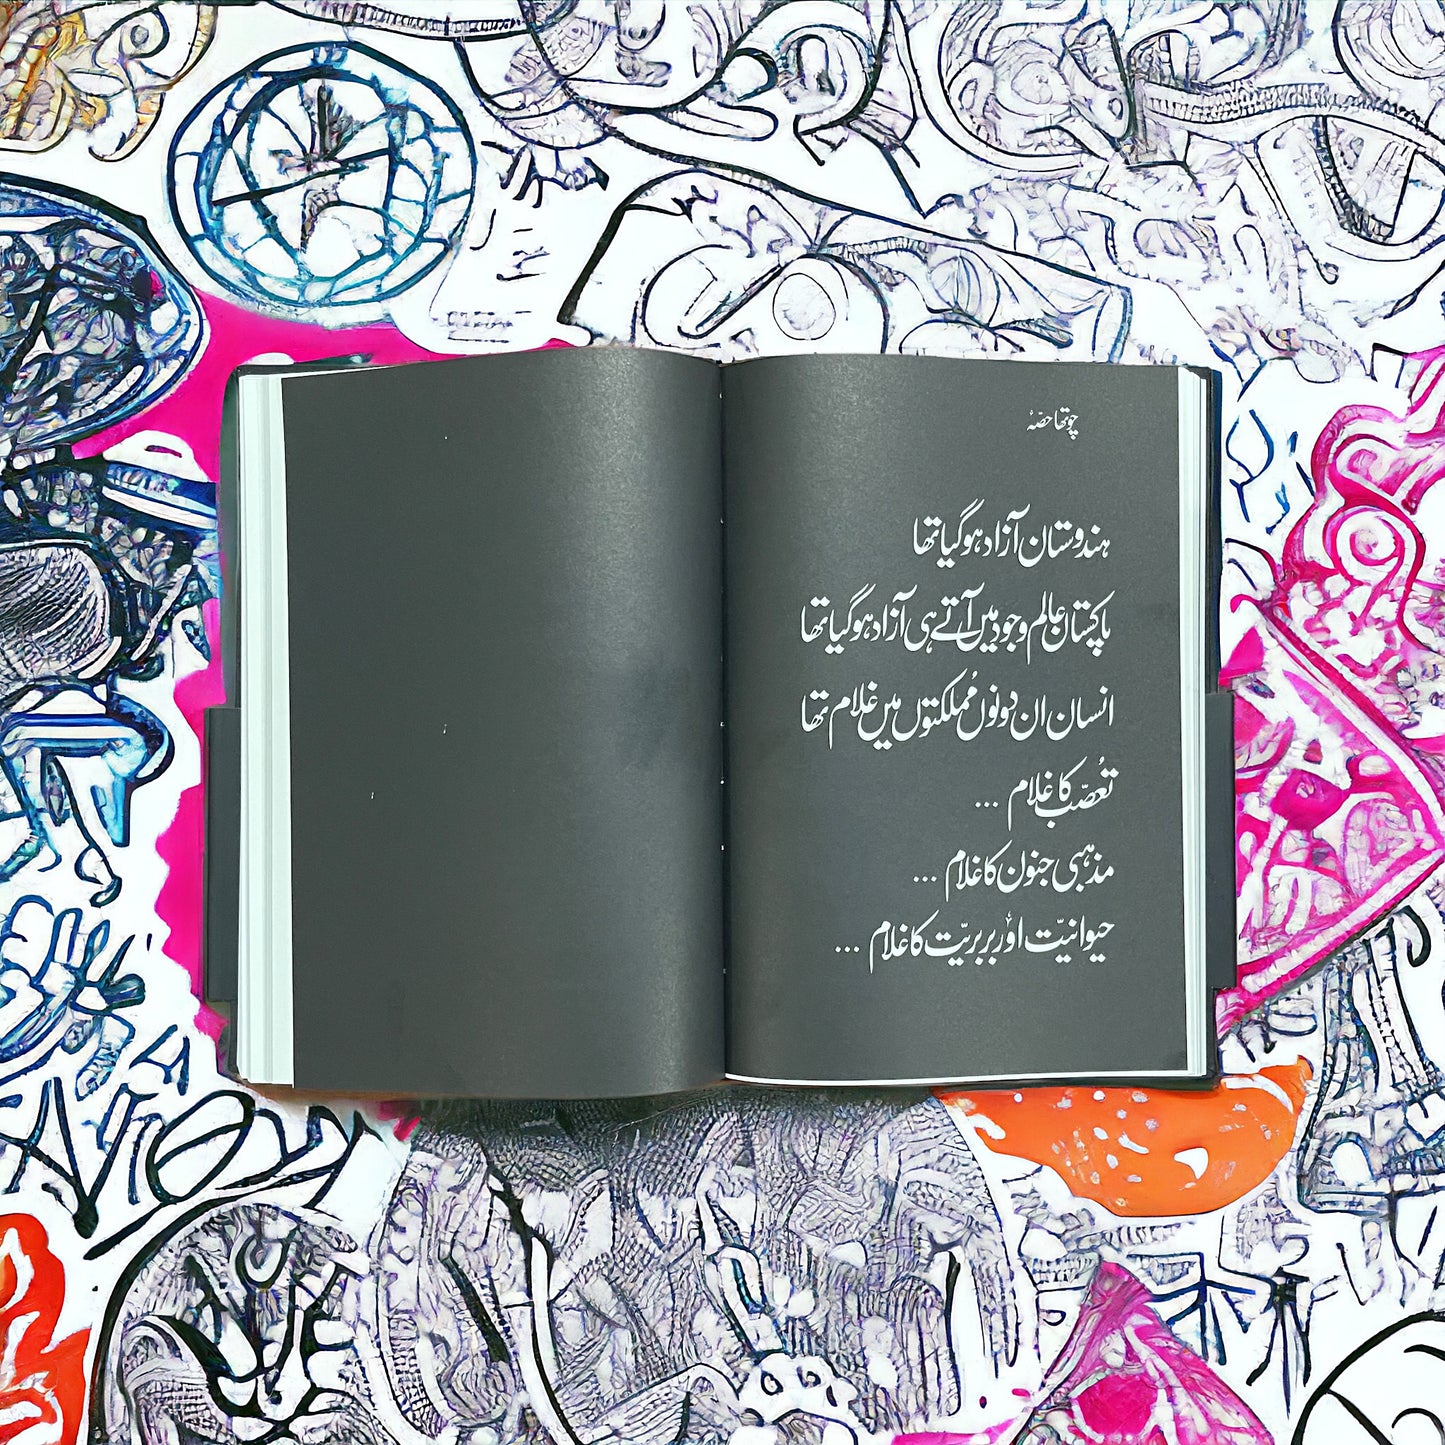 چوتھا حصّہ
ہندوستان آزاد ہو گیا تھا
پاکستان عالم وجود میں آتے ہی آزاد ہو گیا تھا
انسان ان دونوں مملکتوں میں غلام تھا
تعصّب کا غلام ...
مذہبی جنون کا غلام ...
حیوانیّت اور بربریّت کا غلام ...